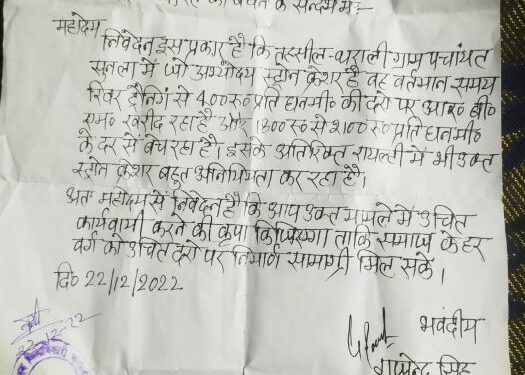 के सन्दर्भ में:-
महोदय
निवेदन इस प्रकार है कि तहसील-थराली ग्राम पंचायत
सुनला में जो स्टोन क्रेशर है वह वर्तमान समय
रिवर ट्रेनिंग से 400 रू० प्रति घनमी० की दरो पर आर० बी०
एम० खरीद रहा है और 1800 रू० से 2100 रू० प्रति घनमी०
के दर से बेच रहा है। इसके अतिरिक्त रायल्टी में भी उक्त
स्टोन क्रेशर बहुत अनियमिता कर रहा है।
अतः महोदय से निवेदन है कि आप उक्त मामले में उचित
कार्यवाही करने की कृपा किजिएगा ताकि समाज के हर
वर्ग को उचित दरो पर निर्माण सामाग्री मिल सके।
दि० 22/12/2022
भवदीय
22-12-22
सिंह